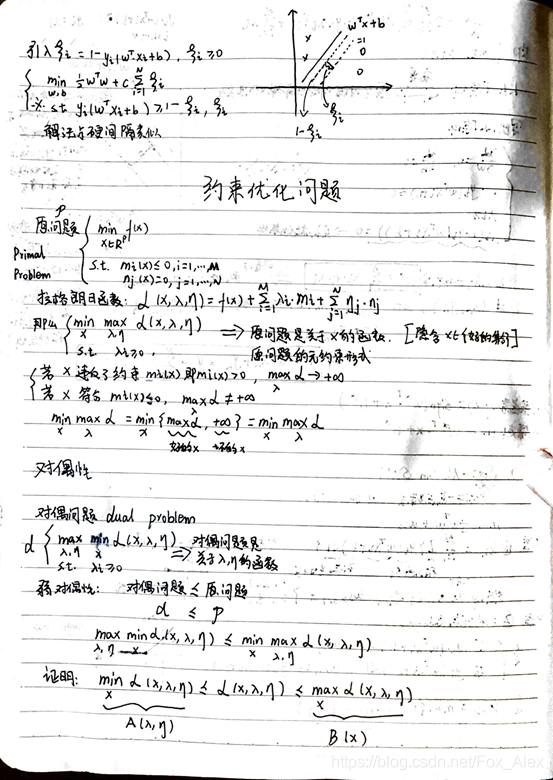 引入ξi = 1-yi(wᵀxi+b), ξi ≥0
wᵀx+b
=1
0
0
x
x
{ min w,b ½wᵀw + C Σ i=1 N ξi
s.t. yi(wᵀxi+b) ≥ 1-ξi, ξi
1-ξi
ξi
解法与硬间隔类似
约束优化问题
P
原问题 { min x∈Rᴾ f(x)
Primal Problem
s.t. mi(x) ≤ 0, i=1,...,M
nj(x)=0, j=1,...,N
拉格朗日函数: L(x,λ,η) = f(x) + Σ i=1 M λi·mi + Σ j=1 N ηj·nj
即么 { min x max λ,η L(x,λ,η) ⇒ 原问题是关于x的函数. [隐含 x∈{好的集合}]
s.t. λi≥0. 原问题的无约束形式
{ 若 x 违反了约束 mi(x) 即 mi(x)>0, max λ L → +∞
若 x 符合 mi(x)≤0, max λ L ≠ +∞
min x max λ L = min x {max λ L, +∞} = min x max λ L
好的x 坏的x
对偶性
对偶问题 dual problem
d { max λ,η min x L(x,λ,η) ⇒ 对偶问题是
s.t. λi≥0 关于λ,η的函数
弱对偶性: 对偶问题 ≤ 原问题
d ≤ P
max λ,η min x L(x,λ,η) ≤ min x max λ,η L(x,λ,η)
证明: min x L(x,λ,η) ≤ L(x,λ,η) ≤ max x L(x,λ,η)
A(λ,η) B(x)
https://blog.csdn.net/Fox_Alex